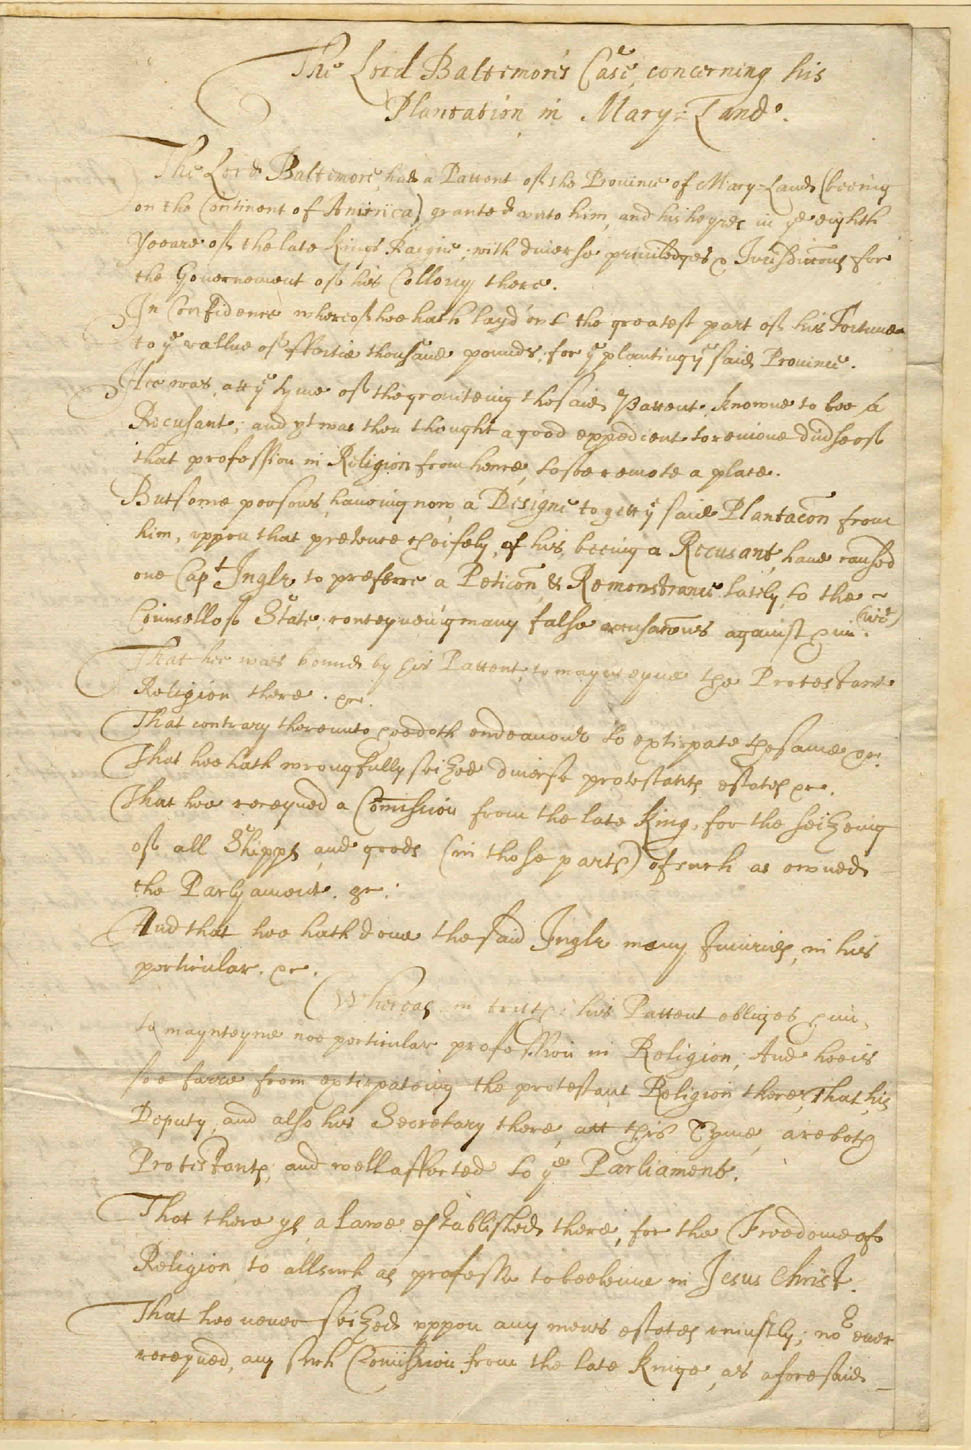 The Lord Baltemores Case, concerning his
Plantation in Mary=Land.
The Lord Baltemore, had a Pattent of the Province of Mary=Land (beeing
on the Continent of America) granted unto him, and his heyres in ye eighth
Yeeare of the late Kings Raigne; with diverse priviledges & Jurisdictions for
the Government of his Collony there.
In Confidence whereof hee hath layd out the greatest part of his Fortune
to ye vallue of ffortie thousand pounds, for ye planting ye said Province.
Hee was, att ye tyme of the granteing the said Pattent, knowne to bee a
Recusant; and yt was then thought a good expedient to remove such of
that profession in Religion from hence, to soe remote a place.
But some persons, haveing now a Designe to gett ye said Plantacon from
him, uppon that pretence cheifely, of his beeing a Recusant, have caused
one Capt Ingle to preferre a Peticon, & Remonstrance lately, to the
Councell of State; conteyneing many false accusations against him. (vizt)
That hee was bound by his Pattent, to maynteyne the Protestant
Religion there. &c.
That contrary thereunto hee doth endeavour to extirpate the same &c.
That hee hath wrongfully seized diverse protestants estates &c.
That hee receyved a Comission from the late King, for the seizeing
of all Shipps and goods (in those parts) of such as owned
the Parlyament. &c.
And that hee hath done the said Ingle many Iniuries, in his
perticular. &c.
Whereas in truth; his Pattent obliges him,
to maynteyne noe perticular profession in Religion; And hee is
soe farre from extirpateing the protestant Religion there, That his
Deputy, and also his Secretary there, att this Tyme, are both
Protestants, and well affected to ye Parliament.
That there ys a Lawe established there, for the Freedome of
Religion, to all such as professe to beeleeve in Jesus Christ.
That hee never seized uppon any mens estates uniustly; nor ever
receyved, any such Comission from the late Kinge, as aforesaid